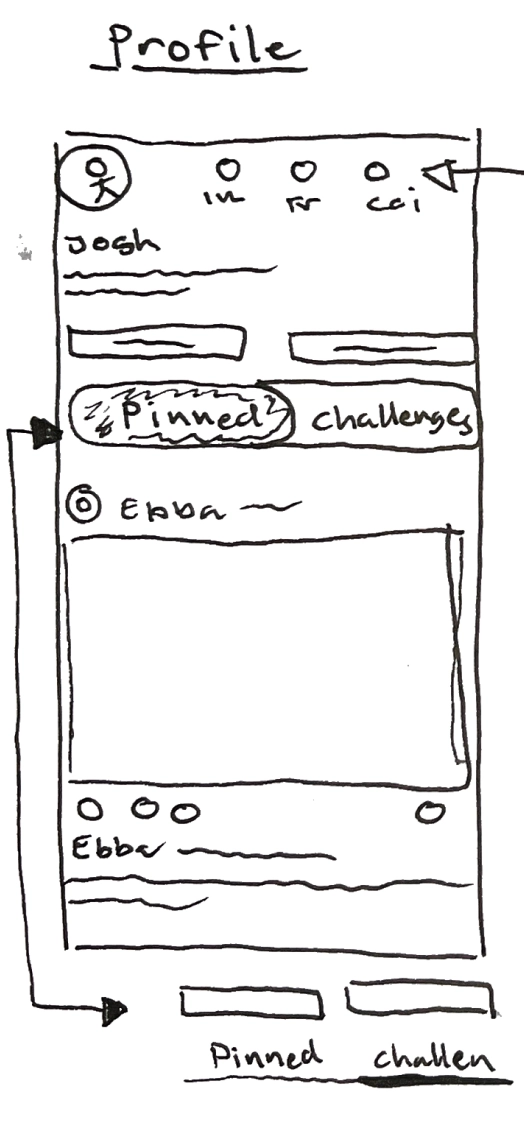 Profile
Josh
Pinned challenges
Ebba
Ebba
Pinned challen